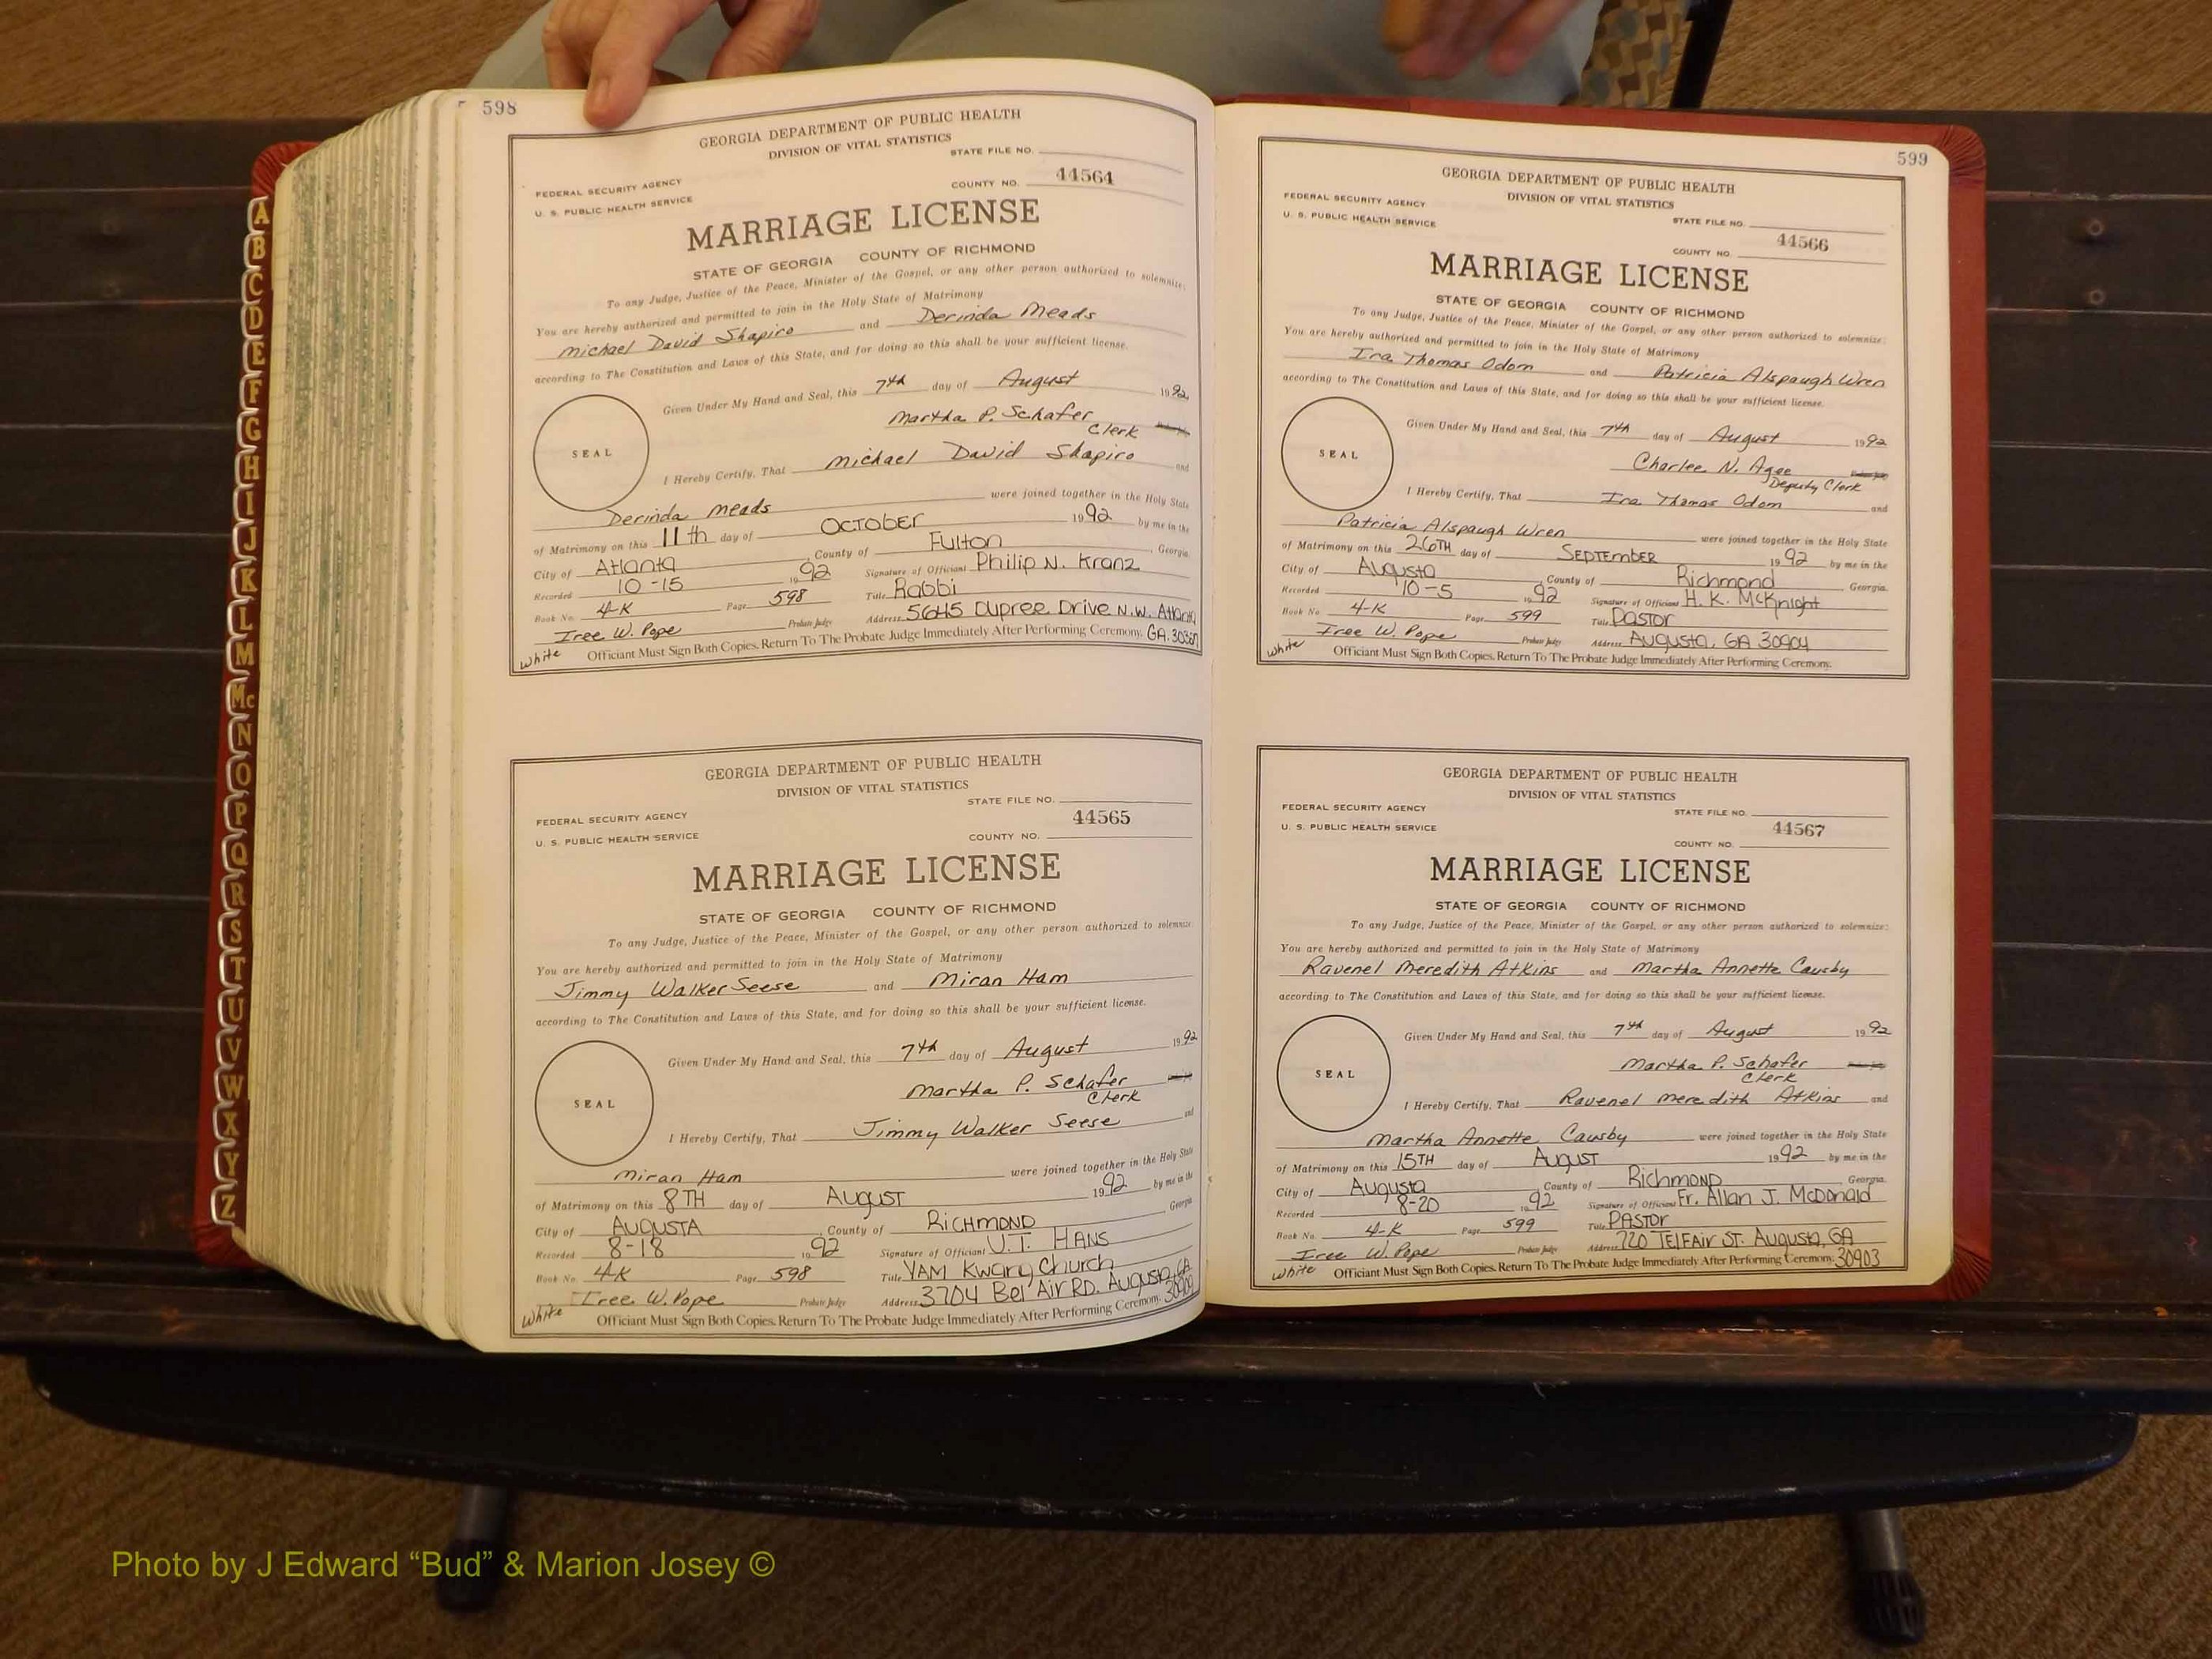 598
GEORGIA DEPARTMENT OF PUBLIC HEALTH
DIVISION OF VITAL STATISTICS
STATE FILE NO.
FEDERAL SECURITY AGENCY
COUNTY NO. 44564
U. S. PUBLIC HEALTH SERVICE
MARRIAGE LICENSE
STATE OF GEORGIA COUNTY OF RICHMOND
To any Judge, Justice of the Peace, Minister of the Gospel, or any other person authorized to solemnize:
You are hereby authorized and permitted to join in the Holy State of Matrimony
Michael David Shapiro and Derinda Meads
according to The Constitution and Laws of this State, and for doing so this shall be your sufficient license.
Given Under My Hand and Seal, this 7th day of August 1992
Martha P. Schafer
Clerk
SEAL
I Hereby Certify, That Michael David Shapiro and
Derinda Meads were joined together in the Holy State
of Matrimony on this 11th day of OCTOBER 1992 by me in the
City of Atlanta, County of Fulton, Georgia
Recorded 10-15 1992 Signature of Officiant Philip N. Kranz
Book No. 4-K Page 598 Title Rabbi
Iree W. Pope Probate Judge Address 5645 Dupree Drive N.W. Atlanta
GA.
White Officiant Must Sign Both Copies. Return To The Probate Judge Immediately After Performing Ceremony.
GEORGIA DEPARTMENT OF PUBLIC HEALTH
DIVISION OF VITAL STATISTICS
STATE FILE NO.
FEDERAL SECURITY AGENCY
44565
U. S. PUBLIC HEALTH SERVICE
COUNTY NO.
MARRIAGE LICENSE
STATE OF GEORGIA COUNTY OF RICHMOND
To any Judge, Justice of the Peace, Minister of the Gospel, or any other person authorized to solemnize
You are hereby authorized and permitted to join in the Holy State of Matrimony
Jimmy Walker Seese and Miran Ham
according to The Constitution and Laws of this State, and for doing so this shall be your sufficient license.
Given Under My Hand and Seal, this 7th day of August 1992
Martha P. Schafer
Clerk
SEAL
I Hereby Certify, That Jimmy Walker Seese and
Miran Ham were joined together in the Holy State
of Matrimony on this 8TH day of AUGUST 1992 by me in the
City of AUGUSTA, County of RICHMOND Georgia
Recorded 8-18 1992 Signature of Officiant U.T. HANS
Book No. 4-K Page 598 Title YAM Kwang Church
Iree W. Pope Probate Judge Address 3704 Bel Air RD. Augusta, GA
30909
White Officiant Must Sign Both Copies. Return To The Probate Judge Immediately After Performing Ceremony.
599
GEORGIA DEPARTMENT OF PUBLIC HEALTH
DIVISION OF VITAL STATISTICS
FEDERAL SECURITY AGENCY
STATE FILE NO.
U. S. PUBLIC HEALTH SERVICE
44566
COUNTY NO.
MARRIAGE LICENSE
STATE OF GEORGIA COUNTY OF RICHMOND
To any Judge, Justice of the Peace, Minister of the Gospel, or any other person authorized to solemnize:
You are hereby authorized and permitted to join in the Holy State of Matrimony
Ira Thomas Odom and Patricia Alspaugh Wren
according to The Constitution and Laws of this State, and for doing so this shall be your sufficient license.
Given Under My Hand and Seal, this 7th day of August 1992
Charlee N. Agee
Deputy Clerk
SEAL
I Hereby Certify, That Ira Thomas Odom and
Patricia Alspaugh Wren were joined together in the Holy State
of Matrimony on this 26TH day of SEPTEMBER 1992 by me in the
City of Augusta, County of Richmond Georgia.
Recorded 10-5 1992 Signature of Officiant H. K. McKnight
Book No. 4-K Page 599 Title Pastor
Iree W. Pope Probate Judge Address Augusta, GA 30904
White Officiant Must Sign Both Copies. Return To The Probate Judge Immediately After Performing Ceremony.
GEORGIA DEPARTMENT OF PUBLIC HEALTH
DIVISION OF VITAL STATISTICS
FEDERAL SECURITY AGENCY
STATE FILE NO.
U. S. PUBLIC HEALTH SERVICE
44567
COUNTY NO.
MARRIAGE LICENSE
STATE OF GEORGIA COUNTY OF RICHMOND
To any Judge, Justice of the Peace, Minister of the Gospel, or any other person authorized to solemnize:
You are hereby authorized and permitted to join in the Holy State of Matrimony
Ravenel Meredith Atkins and Martha Annette Causby
according to The Constitution and Laws of this State, and for doing so this shall be your sufficient license.
Given Under My Hand and Seal, this 7th day of August 1992
Martha P. Schafer
Clerk
SEAL
I Hereby Certify, That Ravenel Meredith Atkins and
Martha Annette Causby were joined together in the Holy State
of Matrimony on this 15TH day of AUGUST 1992 by me in the
City of Augusta, County of Richmond Georgia.
Recorded 8-20 1992 Signature of Officiant Fr. Allan J. McDonald
Book No. 4-K Page 599 Title PASTOR
Iree W. Pope Probate Judge Address 720 TElFAir ST. Augusta, GA
White Officiant Must Sign Both Copies. Return To The Probate Judge Immediately After Performing Ceremony. 30903
A
B
C
D
E
F
G
H
I
J
K
L
M
Mc
N
O
P
Q
R
S
T
U
V
W
X
Y
Z
Photo by J Edward “Bud” & Marion Josey ©